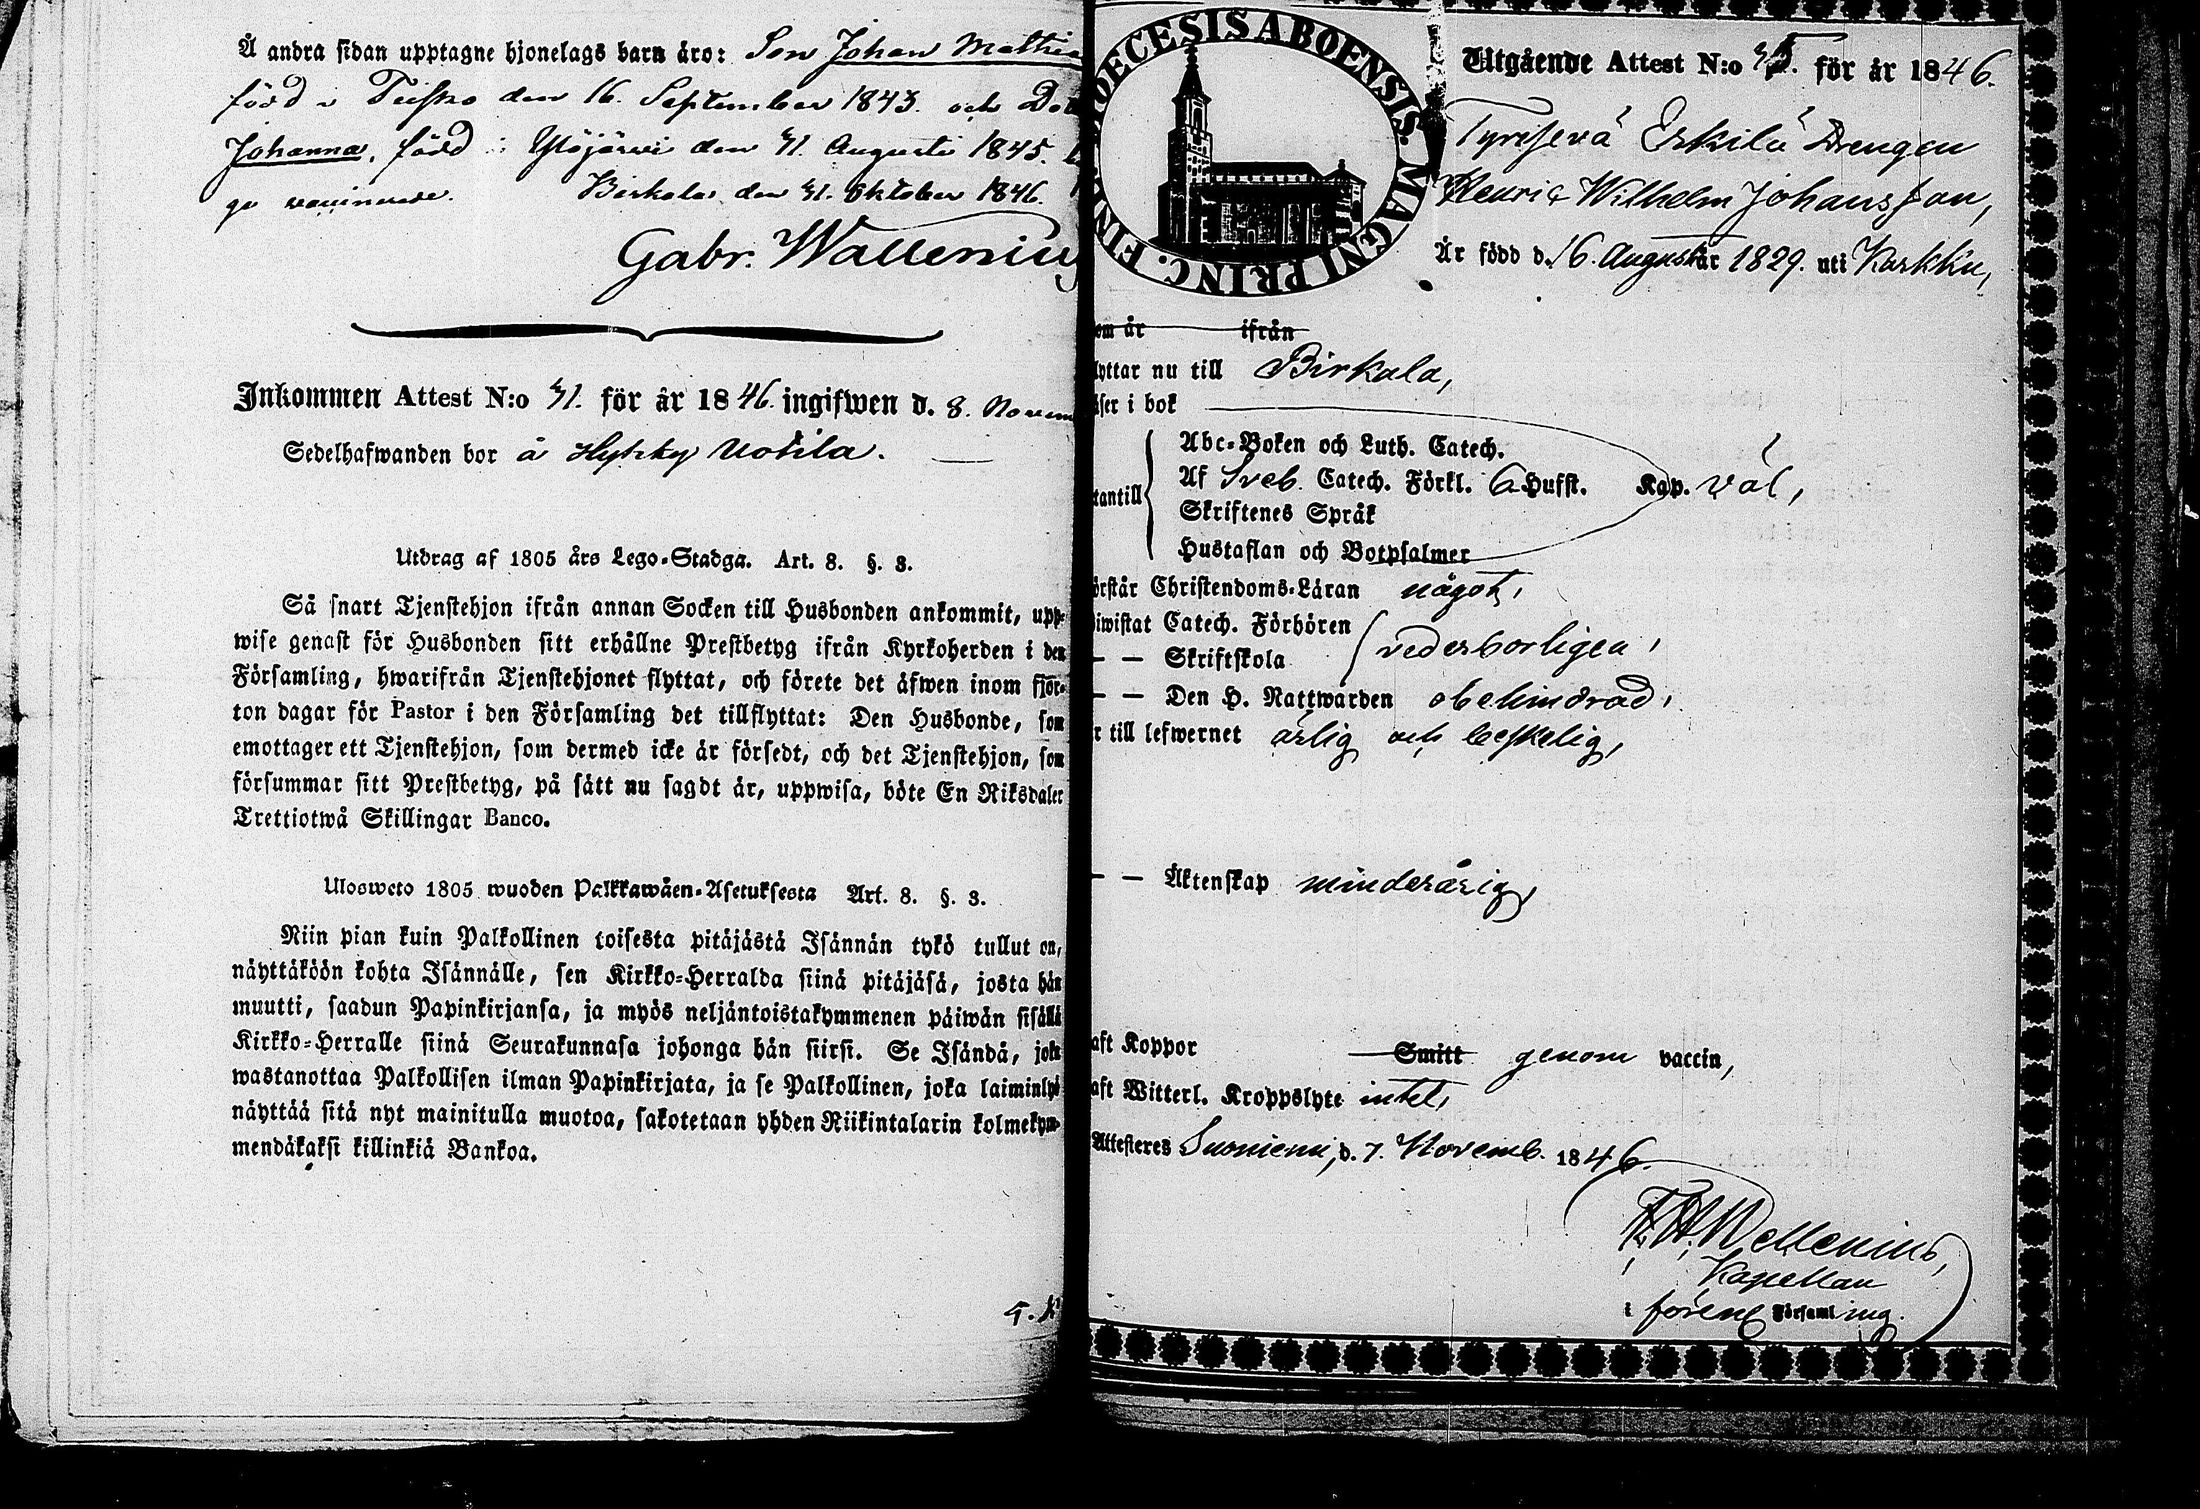 Å andra sidan upptagne hjonelags barn äro: Son Johan Mathia
född i Teisko den 16. September 1843. och Do
Johanna, född i Ylöjärvi den 21. Augusti 1845.
ge vaccinerade. Birkala den 21. Oktober 1846.
Gabr. Wallenius
Inkommen Attest N:o 21. för år 1846. ingifwen d. 8. Novem
Sedelhafwanden bor å Hyhky Uotila.
Utdrag af 1805 års Lego-Stadga. Art. 8. §. 3.
Så snart Tjenstehjon ifrån annan Socken till Husbonden ankommit, upp-
wise genast för Husbonden sitt erhållne Prestbetyg ifrån Kyrkoherden i den
Församling, hwarifrån Tjenstehjonet flyttat, och förete det äfwen inom fjor-
ton dagar för Pastor i den Församling det tillflyttat: Den Husbonde, som
emottager ett Tjenstehjon, som dermed icke är försedt, och det Tjenstehjon, som
försummar sitt Prestbetyg, på sätt nu sagdt är, uppwisa, böte En Riksdaler
Trettiotwå Skillingar Banco.
Ulosweto 1805 wuoden Palkkawäen-Asetuksesta Art. 8. §. 3.
Niin pian kuin Palkollinen toisesta pitäjästä Isännän tykö tullut on,
näyttäköön kohta Isännälle, sen Kirkko-Herralda siinä pitäjäsä, josta hän
muutti, saadun Papinkirjansa, ja myös neljäntoistakymmenen päiwän sisällä
Kirkko-Herralle siinä Seurakunnasa johonga hän siirsi. Se Isändä, joka
wastanottaa Palkollisen ilman Papinkirjata, ja se Palkollinen, joka laiminlyö
näyttää sitä nyt mainitulla muotoa, sakotetaan yhden Riikintalarin kolmekym-
mendäkaksi killinkiä Bankoa.
DIOECESIS ABOENSIS. MAGNI PRINC. FIN
Utgående Attest N:o 25. för år 1846.
Tyrisevä Eskilä Drengen
Henric Wilhelm Johansson,
Är född d. 16. Augusti år 1829. uti Karkku,
om år ifrån
lyttar nu till Birkala,
äser i bok
tantill
Abc-Boken och Luth. Catech.
Af Sveb. Catech. Förkl. 6 Hufst. Kap. väl,
Skriftenes Språk
Hustaflan och Botpsalmer
örstår Christendoms-Läran något,
iwistat Catech. Förhören
— — Skriftskola vederborligen,
— — Den H. Nattwarden obehindrad,
r till lefwernet ärlig och beskelig,
— — Äktenskap minderårig,
aft Koppor Smitt genom vaccin,
aft Witterl. Kroppslyte intet,
Attesteres Suoniemi, d. 7. Novemb. 1846.
Wellenius,
Kapellan
i foren Församling.